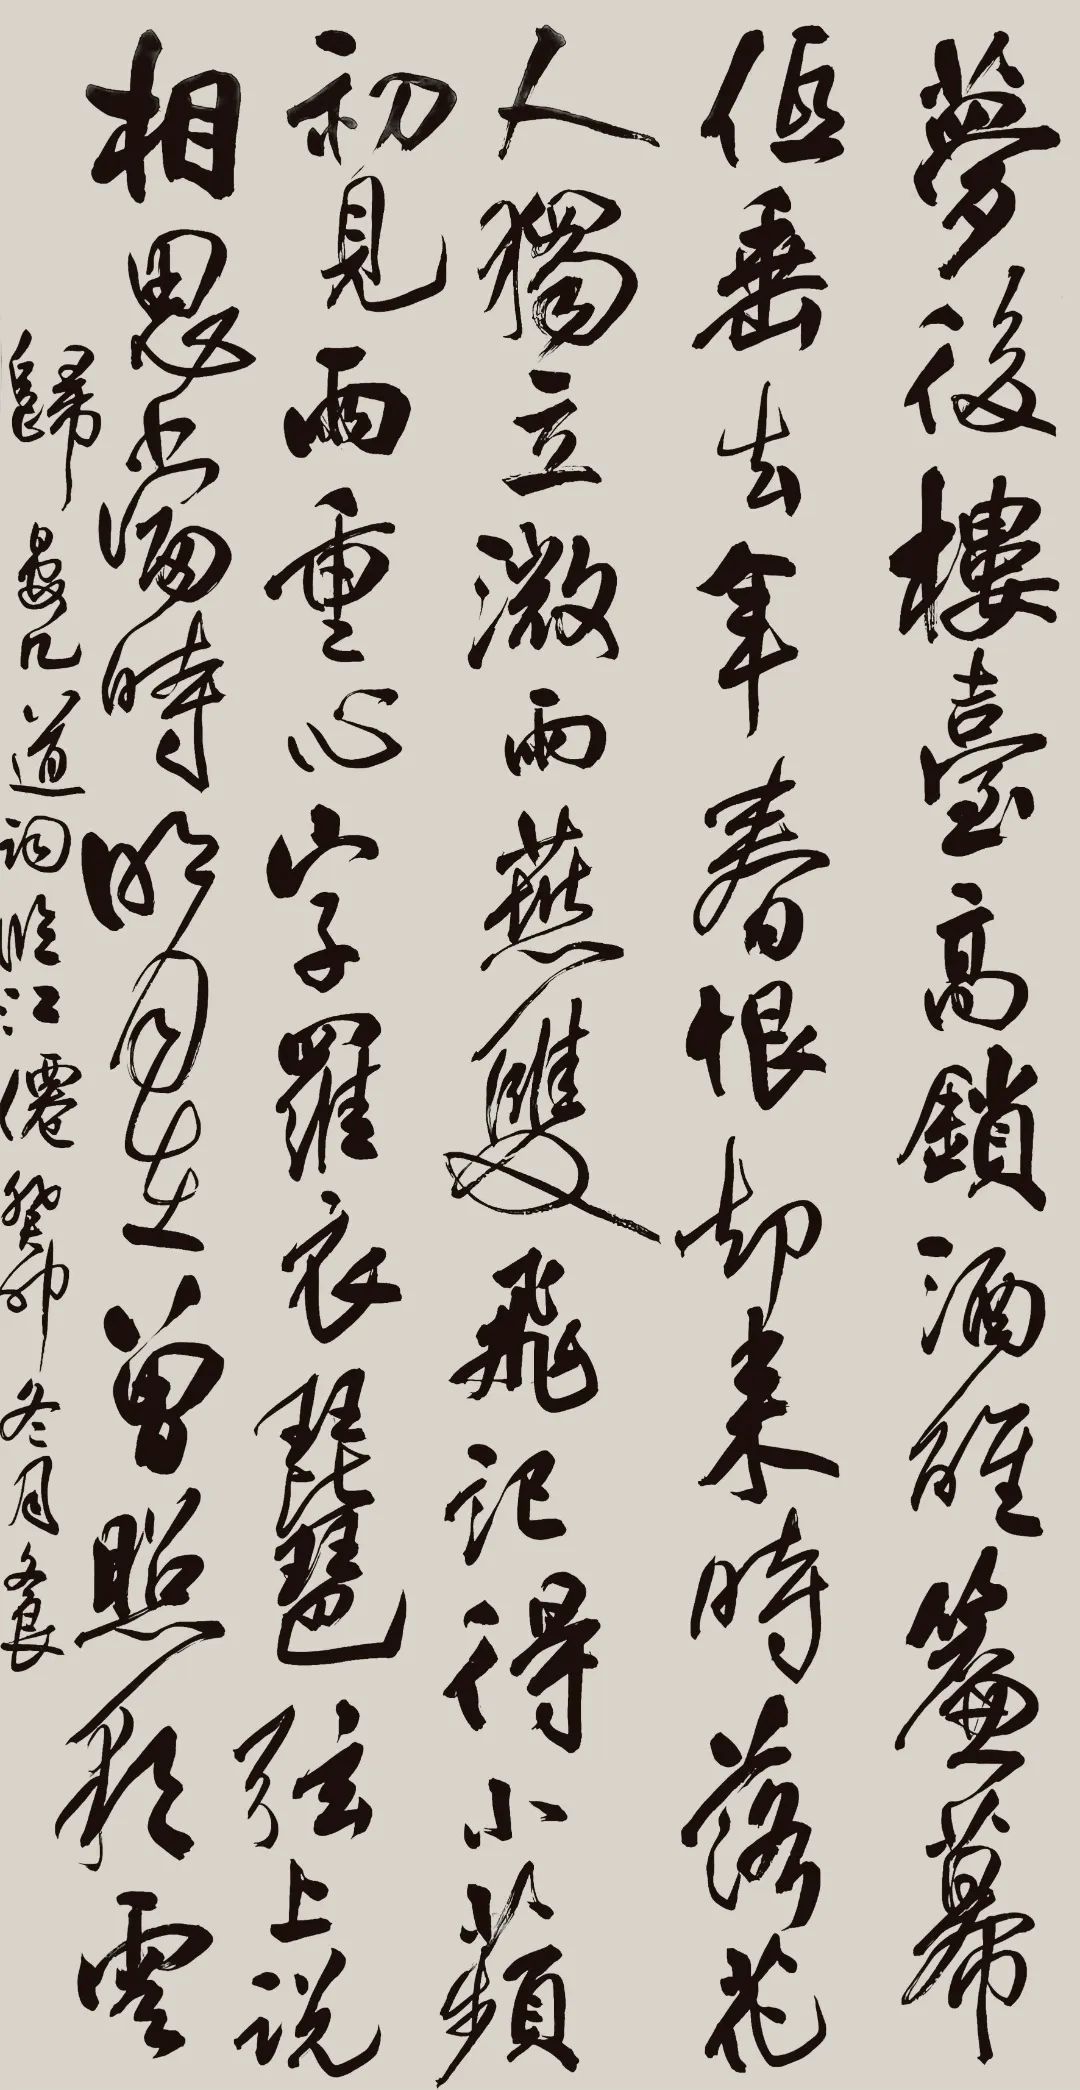 夢後樓臺高鎖酒醒簾幕
低垂去年春恨却来時落花
人獨立微雨燕雙飛記得小蘋
初見兩重心字羅衣琵琶弦上説
相思當時明月在曾照彩雲
歸 晏几道詞臨江僊癸卯冬月